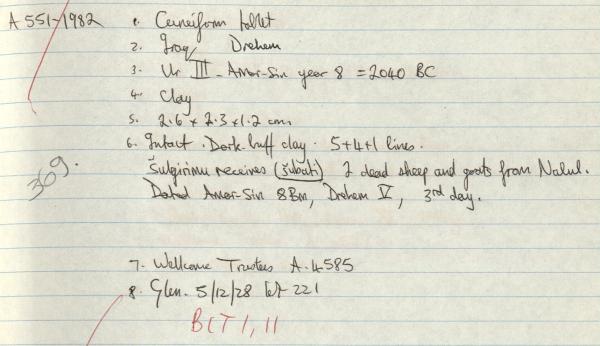 A 551-1982
1. Cuneiform tablet
2. Iraq, Drehem
3. Ur III - Amar-Sin year 8 = 2040 BC
4. Clay
5. 2.6 x 2.3 x 1.2 cms.
6. Intact. Dark buff clay. 5+4+1 lines.
Šulgirimu receives (šubati) 2 dead sheep and goats from Nalul.
Dated Amar-Sin 8Bm, Drehem V, 3rd day.
369.
7. Wellcome Trustees A.4585
8. Glen. 5/12/28 lot 221
BCT 1, 11